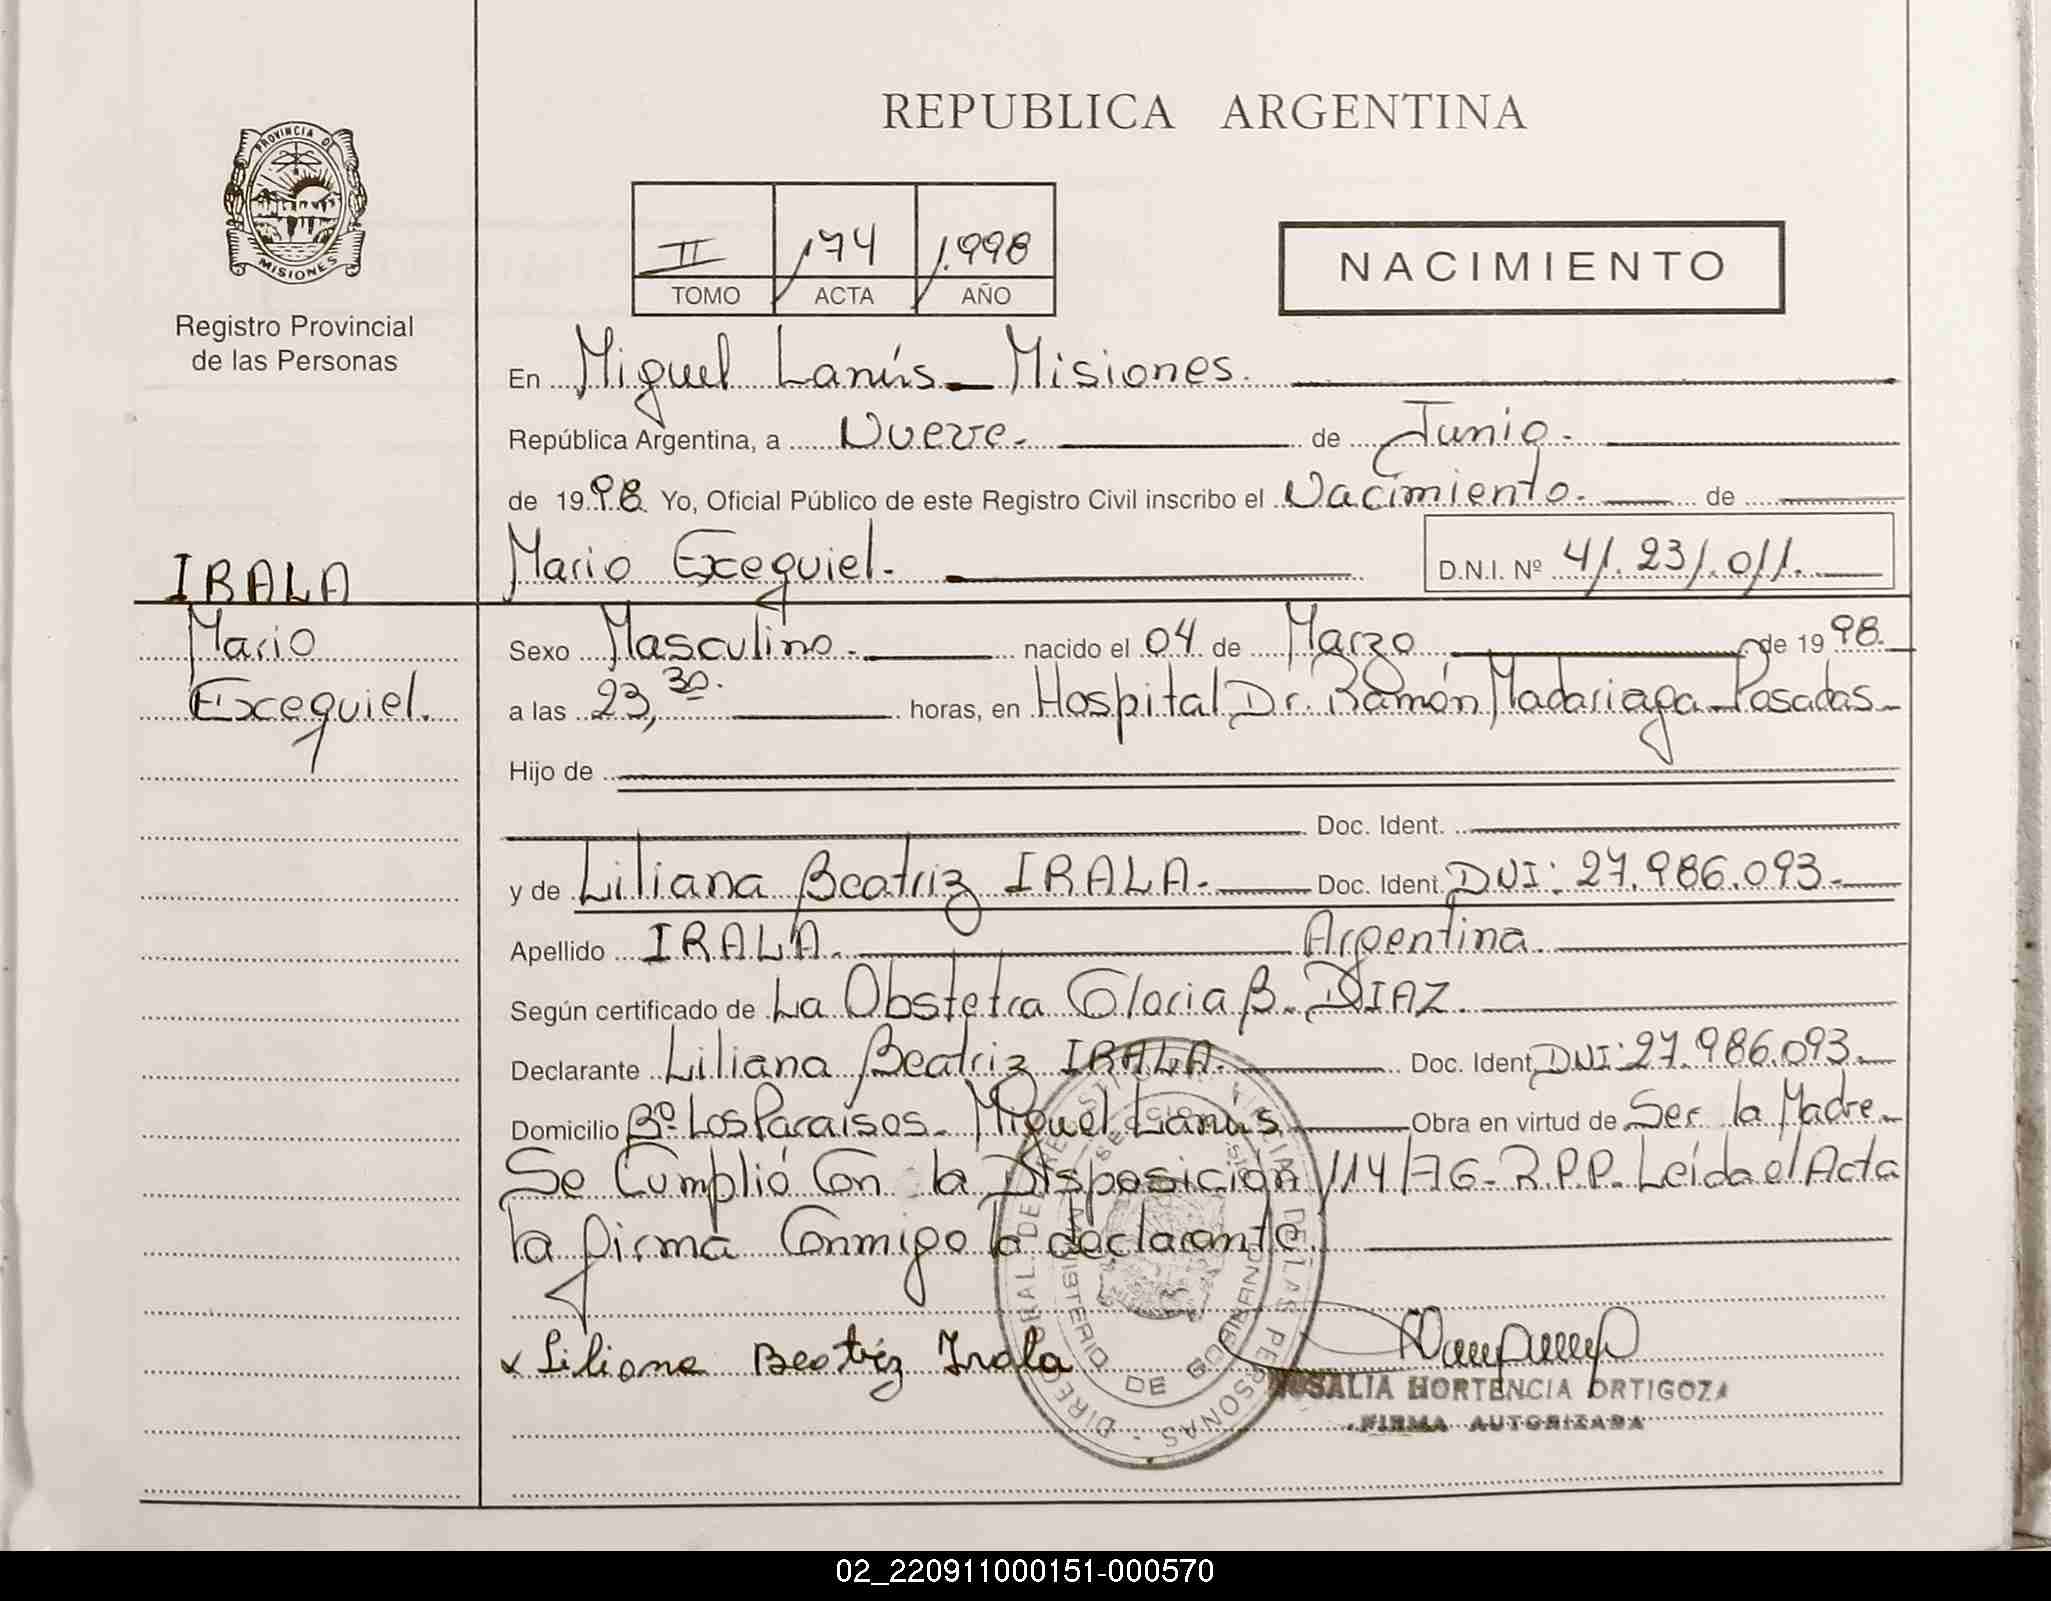 REPUBLICA ARGENTINA
PROVINCIA DE
MISIONES
Registro Provincial
de las Personas
II 174 1.998
TOMO ACTA AÑO
NACIMIENTO
En Miguel Lanús - Misiones.
República Argentina, a Nueve. de Junio.
de 1998 Yo, Oficial Público de este Registro Civil inscribo el Nacimiento. de
IRALA
Mario Exequiel.
Mario Exequiel. D.N.I. Nº 41.231.011.
Sexo Masculino. nacido el 04 de Marzo de 1998.
a las 23,30. horas, en Hospital Dr. Ramón Madariaga - Posadas
Hijo de
Doc. Ident.
y de Liliana Beatriz IRALA. Doc. Ident. DNI: 27.986.093.
Apellido IRALA. Argentina.
Según certificado de La Obstetra Gloria B. DIAZ.
Declarante Liliana Beatriz IRALA. Doc. Ident. DNI: 27.986.093.
Domicilio Bº Los Paraisos - Miguel Lanús Obra en virtud de Ser la Madre.
Se Cumplió Con la Disposición 114/76 - R.P.P. Leída el Acta
la firma Conmigo la declarante.
x Liliana Beatriz Irala
ROSALIA HORTENCIA ORTIGOZA
FIRMA AUTORIZADA
MINISTERIO DE GOBIERNO
02_220911000151-000570